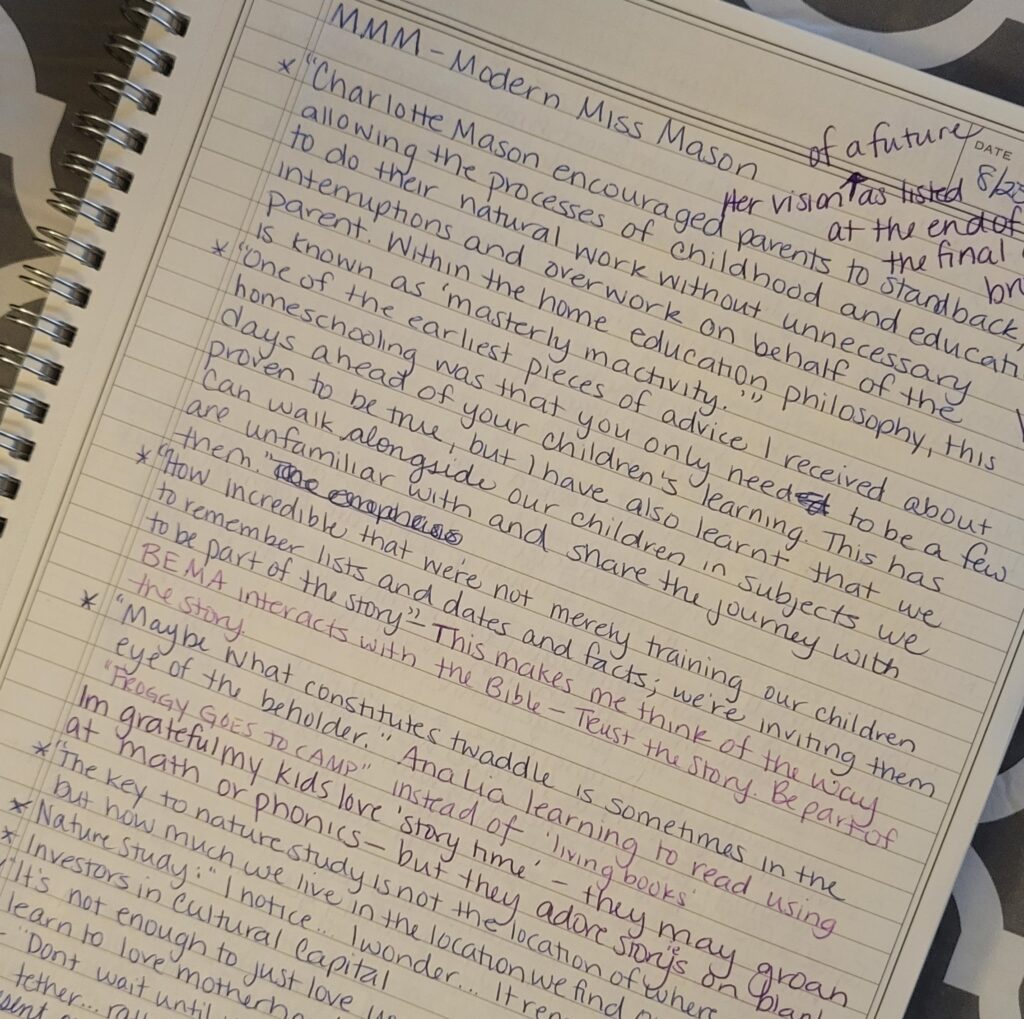 MMM - Modern Miss Mason
DATE
of a future
Her vision as listed
at the end of
the final
* "Charlotte Mason encouraged parents to standback,
allowing the processes of childhood and educati
to do their natural work without unnecessary
interruptions and overwork on behalf of the
parent. Within the home education philosophy, this
is known as 'masterly mactivity.'"
* "One of the earliest pieces of advice I received about
homeschooling was that you only need to be a few
days ahead of your children's learning. This has
proven to be true, but I have also learnt that we
can walk alongside our children in subjects we
are unfamiliar with and share the journey with
them."
* "How incredible that we're not merely training our children
to remember lists and dates and facts; we're inviting them
to be part of the story" - This makes me think of the way
BEMA interacts with the Bible - Trust the story. Be part of
the story.
* "Maybe what constitutes twaddle is sometimes in the
eye of the beholder." Analia learning to read using
"FROGGY GOES TO CAMP" instead of 'living books'
Im grateful my kids love 'story time' - they may groan
at math or phonics - but they adore story's on
* "The key to nature study is not the location of where
but how much we live in the location we find
* Nature study: "I notice... I wonder... It
* Investors in Cultural Capital
"It's not enough to just love
learn to love
"Dont wait until
tether...